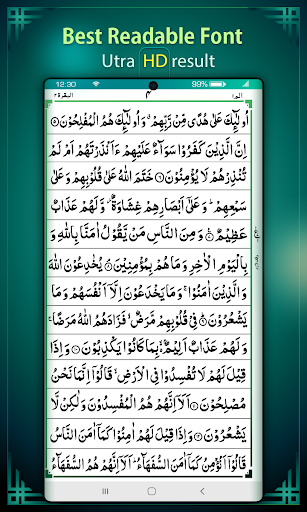 Best Readable Font
Utra HD result
12:30 99%
البقرة ٢ ٤ الٓمّٓ ١
اُولٰٓئِكَ عَلٰى هُدًى مِّنْ رَّبِّهِمْ ۙ وَاُولٰٓئِكَ هُمُ الْمُفْلِحُوْنَ ۝
اِنَّ الَّذِيْنَ كَفَرُوْا سَوَآءٌ عَلَيْهِمْ ءَاَنْذَرْتَهُمْ اَمْ لَمْ
تُنْذِرْهُمْ لَا يُؤْمِنُوْنَ ۝ خَتَمَ اللّٰهُ عَلٰى قُلُوْبِهِمْ وَعَلٰى
سَمْعِهِمْ ؕ وَعَلٰٓى اَبْصَارِهِمْ غِشَاوَةٌ ؗ وَّلَهُمْ عَذَابٌ
عَظِيْمٌ ۝ وَمِنَ النَّاسِ مَنْ يَّقُوْلُ اٰمَنَّا بِاللّٰهِ وَ
بِالْيَوْمِ الْاٰخِرِ وَمَا هُمْ بِمُؤْمِنِيْنَ ۝ يُخٰدِعُوْنَ اللّٰهَ
وَالَّذِيْنَ اٰمَنُوْا ۚ وَمَا يَخْدَعُوْنَ اِلَّآ اَنْفُسَهُمْ وَمَا
يَشْعُرُوْنَ ۝ فِيْ قُلُوْبِهِمْ مَّرَضٌ ۙ فَزَادَهُمُ اللّٰهُ مَرَضًا ۚ
وَلَهُمْ عَذَابٌ اَلِيْمٌ ۢ ۙ بِمَا كَانُوْا يَكْذِبُوْنَ ۝ وَاِذَا
قِيْلَ لَهُمْ لَا تُفْسِدُوْا فِي الْاَرْضِ ۙ قَالُوْٓا اِنَّمَا نَحْنُ
مُصْلِحُوْنَ ۝ اَلَآ اِنَّهُمْ هُمُ الْمُفْسِدُوْنَ وَلٰكِنْ لَّا
يَشْعُرُوْنَ ۝ وَاِذَا قِيْلَ لَهُمْ اٰمِنُوْا كَمَآ اٰمَنَ النَّاسُ
قَالُوْٓا اَنُؤْمِنُ كَمَآ اٰمَنَ السُّفَهَآءُ ؕ اَلَآ اِنَّهُمْ هُمُ السُّفَهَآءُ